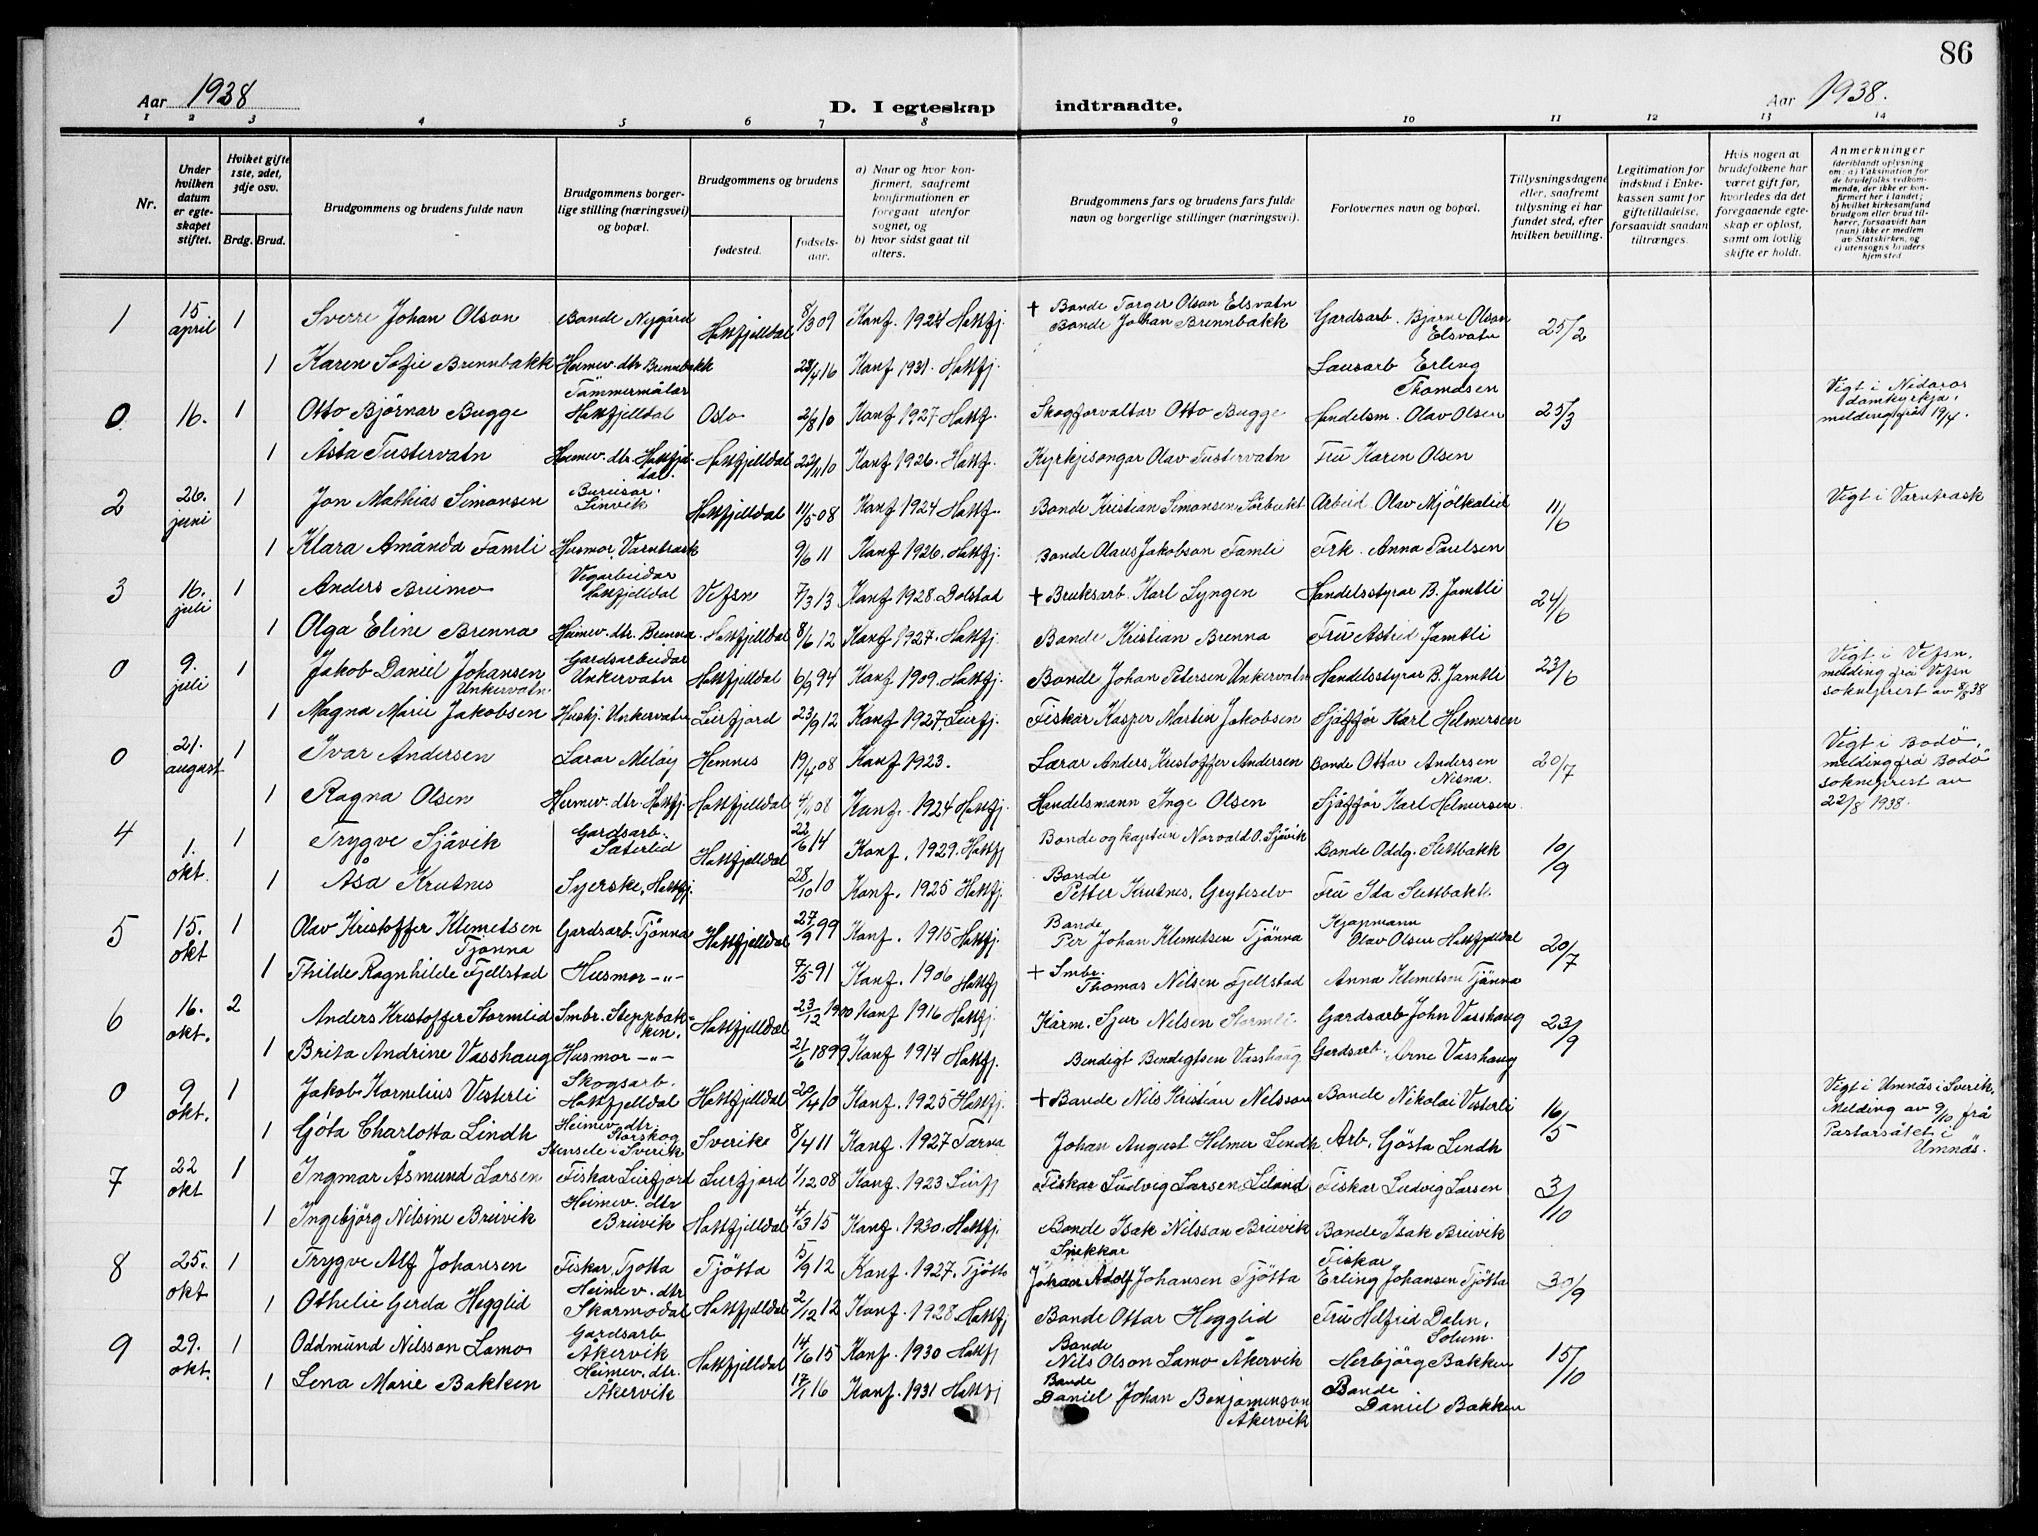 86
Aar 1938
D. I egteskap indtraadte.
Aar 1938.
1 2 3 4 5 6 7 8 9 10 11 12 13 14
Nr.
Under hvilken datum er egteskapet stiftet.
Hviket gifte 1ste, 2det, 3dje osv.
Brdg. Brud.
Brudgommens og brudens fulde navn
Brudgommens borgerlige stilling (næringsvei) og bopæl.
Brudgommens og brudens
fødested.
fødselsaar.
a) Naar og hvor konfirmert, saafremt konfirmationen er foregaat utenfor sognet, og
b) hvor sidst gaat til alters.
Brudgommens fars og brudens fars fulde navn og borgerlige stillinger (næringsvei).
Forlovernes navn og bopæl.
Tillysningsdagene eller, saafremt tillysning ei har fundet sted, efter hvilken bevilling.
Legitimation for indskud i Enkekassen samt for giftetilladelse, forsaavidt saadan tiltrænges.
Hvis nogen av brudefolkene har været gift før, hvorledes da det foregaaende egteskap er opløst, samt om lovlig skifte er holdt.
Anmerkninger
(deriblandt oplysning om: a) Vaksination for de brudefolks vedkommende, der ikke er konfirmert her i landet; b) hvilket kirkesamfund brudgom eller brud tilhører, forsaavidt han (hun) ikke er medlem av Statskirken, og c) utensogns bruders hjemsted
1 15 april 1 Sverre Johan Olson Bonde Nygård Hattfjelldal 8/3 09 Konf. 1924 Hattfj. + Bonde Torger Olson Elsvatn Gardsarb. Bjarne Olson Elsvatn 25/2
1 Karen Sofie Brennbakk Heimev. dtr Brennbakk 28/4 16 Konf 1931. Hattfj. Bonde Johan Brennbakk Lausarb Erling Thomasen
0 16. 1 Otto Bjørnar Bugge Tømmermålar Hattfjelldal Oslo 2/8 10 Konf 1927 Hattf. Skogforvaltar Otto Bugge Handelsm. Olav Olsen 25/3 Vigt i Nidaros domkyrkja, melding frå 19/4.
1 Åsta Tustervatn Heimev. dtr. Hattfjeldal. Hattfjelldal 22/11 10 Konf 1926. Hattf. Kyrkjesongar Olav Tustervatn Fru Karen Olsen
2 26. juni 1 Jon Mathias Simonsen Bureisar. Linvik Hattfjelldal 11/5 08 Konf 1924 Hattf. Bonde Kristian Simonsen Sörbukt Arbeid. Olav Mjölkalid 11/6 Vigt i Varntrask
1 Klara Amånda Famli Husmor Varntrask 9/6 11 Konf 1926. Hattfj. Bonde Olaus Jakobson Famli Frk. Anna Paulsen
3 16. juli 1 Anders Breimo Vegarbeidar Hattfjelldal Vefsn 7/3 13 Konf 1928. Dolstad + Bruksarb. Karl Lyngen Handelsstyrar B. Jamtli 24/6
1 Olga Eline Brenna Heimev. dtr. Brenna. Hattfjelldal 8/6 12 Konf 1927. Hattfj. Bonde Kristian Brenna Fru Astrid Jamtli
0 9. juli 1 Jakob Daniel Johansen Unkervatn Gardsarbeidar Unkervatn Hattfjelldal 6/9 94 Konf 1909. Hattfj. Bonde Johan Petersen Unkervatn Handelsstyrar B. Jamtli 23/6 Vigt i Vefsn, melding frå Vefsn sokneprest av 8/8 38
1 Magna Marie Jakobsen Huskj. Unkervatn Leirfjord 23/9 12 Konf 1927. Leirfj. Fiskar Kasper Martin Jakobsen Sjåffør Karl Helmersen
0 21. august 1 Ivar Andersen Lærar Meløy Hemnes 19/4 08 Konf 1923. Lærar Anders Kristoffer Andersen Bonde Ottar Andersen Nesna. 20/7 Vigt i Bodö, melding frå Bodö sokneprest av 22/8 1938.
1 Ragna Olsen Heimev. dtr. Hattfj. Hattfjelldal 4/11 08 Konf. 1924 Hattfj. Handelsmann Inge Olsen Sjåffør Karl Helmersen
4 1. okt. 1 Trygve Sjåvik Gardsarb. Sæterlid Hattfjelldal 22/6 14 Konf. 1929. Hattfj Bonde og kaptein Norvald O. Sjåvik Bonde Oddg. Slettbakk 10/9
1 Åsa Krutnes Syerske, Hattfj. 28/10 10 Konf. 1925 Hattfj. Bonde Petter Krutnes, Gryteselv Fru Ida Slettbakk
5 15. okt 1 Olav Kristoffer Klemetsen Tjönna Gardsarb. Tjönna Hattfjelldal 27/9 99 Konf. 1915 Hattfj. Bonde Per Johan Klemetsen Tjönna Kjøpmann Olav Olsen Hattfjelldal 20/7
1 Thilde Ragnhilde Fjellstad Husmor -"- 7/5 91 Konf. 1906 Hattfj + Smbr. Thomas Nilsen Fjellstad Anna Klemetsen Tjönna
6 16. okt. 2 Anders Kristoffer Stormlid Smbr. Steppbakken. Hattfjelldal 23/12 1900 Konf 1916 Hattfj. Kårm. Sjur Nilsen Stormli Gardsarb John Vasshaug 23/9
1 Brita Andrine Vasshaug Husmor -"- 21/6 1899 Konf 1914 Hattfj. Bendigt Bendigtsen Vasshaug Gardsarb. Arne Vasshaug
0 9 okt. 1 Jakob Kornelius Vesterli Skogsarb. Hattfjelldal Hattfjelldal 20/4 10 Konf. 1925 Hattfj. + Bonde Nils Kristian Nilsson Bonde Nikolai Vesterli 16/5 Vigt i Umnäs i Sverik, Melding av 9/10 frå Pastorsätet i Umnäs.
1 Göta Charlotta Lindh Heimev. dtr. Storskog Stensele i Sverik Sverike 8/4 11 Konf. 1927 Tärna Johan August Helmer Lindh Arb. Gösta Lindh
7 22 okt 1 Ingmar Åsmund Larsen Fiskar Leirfjord Leirfjord 1/12 08 Konf. 1923 Leirfj Fiskar Ludvig Larsen Leland Fiskar Ludvig Larsen 3/10
1 Ingebjörg Nilsine Breivik Heimev. dtr Breivik Hattfjelldal 4/3 15 Konf. 1930. Hattfj. Bonde Isak Nilsson Breivik Bonde Isak Breivik
8 25. okt 1 Trygve Alf Johansen Fiskar, Tjøtta Tjötta 5/9 12 Konf. 1927. Tjötta Snekkar Johan Adolf Johansen Tjötta Fiskar Erling Johansen Tjötta 30/9
1 Othelie Gerda Hegglid Heimev. dtr Skarmodal Hattfjelldal 2/12 12 Konf. 1928 Hattfj Bonde Ottar Hegglid Fru Helfrid Dalen, Solum.
9 29. okt. 1 Oddmund Nilsson Lamo Gardsarb Åkervik Hattfjelldal 14/6 15 Konf. 1930 Hattfj Bonde Nils Olson Lamo Åkervik Herbjörg Bakken 15/10
1 Lena Marie Bakken Heimev. dtr. Åkervik 17/1 16 Konf. 1931 Hattfj Bonde Daniel Johan Benjaminson Åkervik Bonde Daniel Bakken